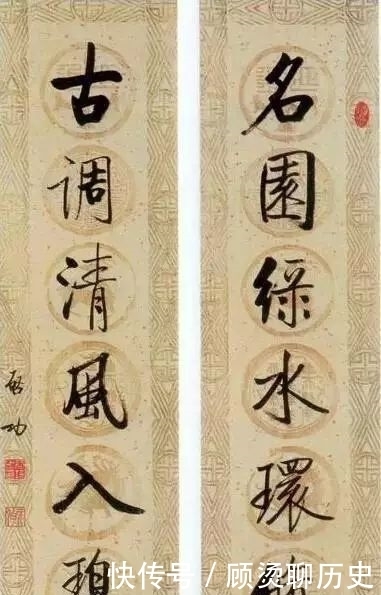 名園綠水環
古調清風入碧
启功
快传号 / 顾烫聊历史